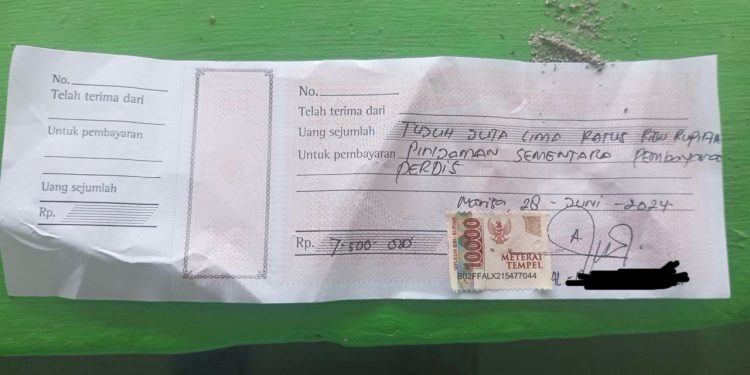 No.
Telah terima dari
Untuk pembayaran
Uang sejumlah
Rp.
No.
Telah terima dari
Uang sejumlah TUJUH JUTA LIMA RATUS RIBU RUPIAH
Untuk pembayaran PINJAMAN SEMENTARA Pembayaran
PERDIS
Marisa, 28 - JUNI - 2024
Rp. 7.500.000
10.000
METERAI
TEMPEL
B02FFALX215477044
A.